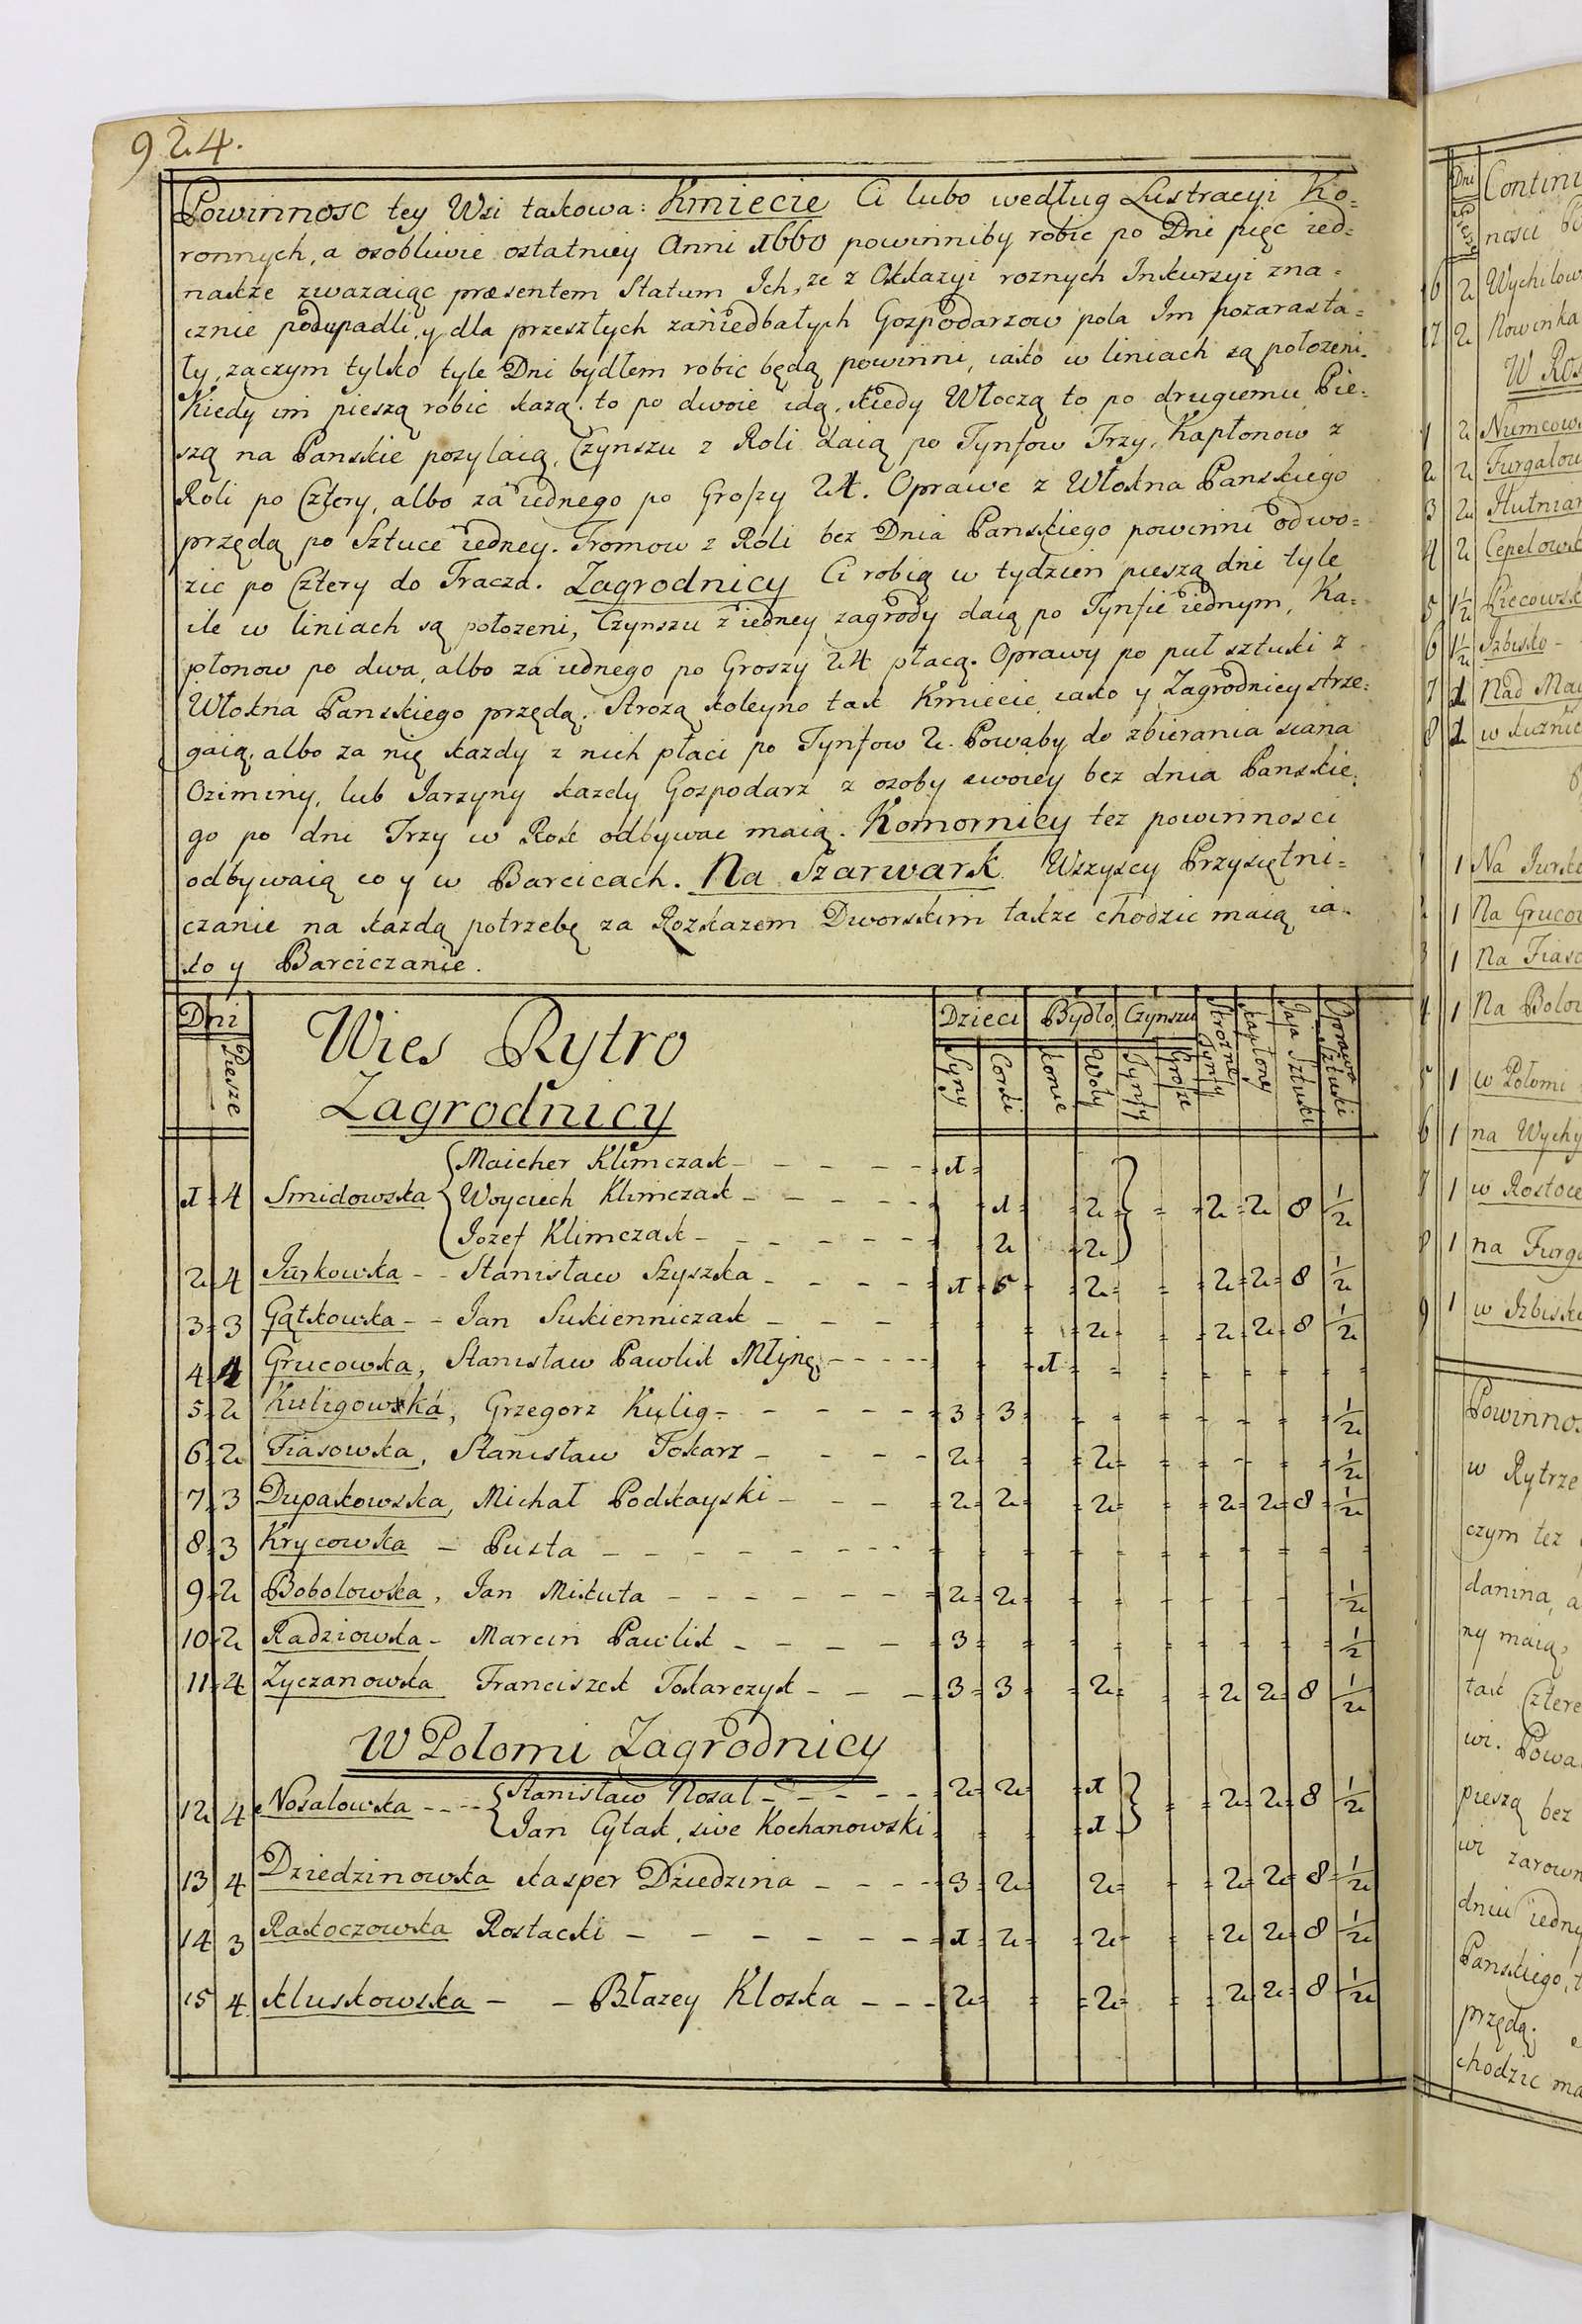 924.
Powinnosc tey Wsi takowa: Kmiecie Ci lubo według Lustracyi Ko=
ronnych, a osobliwie ostatniey Anni 1660 powinniby robic po Dni pięc ied=
nakze zwazaiąc præsentem Statum Ich, ze z Okkazyi roznych Inkursyi zna=
cznie podupadli, y dla przeszłych zaniedbałych Gospodarzow pola Im pozarasta=
ły, zączym tylko tyle Dni bydłem robic będą powinni, iako w liniach są położeni.
Kiedy im pieszą robic kazą. to po dwoie idą, kiedy Włoczą to po drugiemu Pie=
szą na Panskie posylaią, Czynszu z Roli daią po Tynfow Trzy, Kapłonow z
Roli po Cztery, albo za iednego po Groszy 24. Oprawe z Włokna Panskiego
przędą po Sztuce iedney. Tromow z Roli bez Dnia Panskiego powinni odwo=
zic po Cztery do Tracza. Zagrodnicy Ci robią w tydzien pieszą dni tyle
ile w liniach są położeni, Czynszu z iedney zagrody daią po Tynfie iednym, Ka=
płonow po dwa, albo za iednego po Groszy 24 płacą. Oprawy po puł sztuki z
Włokna Panskiego przędą. Strozą koleyno tak Kmiecie, iako y Zagrodnicy strze=
gaią, albo za nię kazdy z nich płaci po Tynfow 2. Powaby do zbierania siana
Oziminy, lub Jarzyny kazdy Gospodarz z osoby swoiey bez dnia Panskie.
go po dni Trzy w Rok odbywac maią. Komornicy tez powinnosci
odbywaią co y w Barcicach. Na Szarwark Wszyscy Przysiętni=
czanie na kazdą potrzebę za Rozkazem Dworskim takze chodzic maią ia=
ko y Barciczanie.
Dni Piesze Wies Rytro Dzieci Bydło Czynszu Strozne Tynfy Kapłony Jaja Sztuki Oprawa Sztuki
Syny Corki Konie Woły Tynfy Grosze
Zagrodnicy
Maicher Klimczak - - - - 1
1 4 Smidowska Woyciech Klimczak - - - - 1 2 2 2 8 1/2
Jozef Klimczak - - - - 2 2
2 4 Jurkowska - - Stanisław Szyszka - - - - 1 5 2 2 2 8 1/2
3 3 Gątkowska - - Jan Sukienniczak - - - 2 2 2 8 1/2
4 4 Grucowska, Stanisław Pawlik Młynę - - - - 1
5 2 Kuligowska, Grzegorz Kulig - - - - 3 3 1/2
6 2 Fiasowska, Stanisław Tokarz - - - - 2 2 1/2
7 3 Dupakowska, Michał Podkayski - - - 2 2 2 2 2 8 1/2
8 3 Krycowska - Pusta - - - - - - -
9 2 Bobolowska, Jan Mikuta - - - - - - 2 2 1/2
10 2 Radziowska - Marcin Pawlik - - - - 3 1/2
11 4 Zyczanowska Franciszek Tokarczyk - - - 3 3 2 2 2 8 1/2
W Polomi Zagrodnicy
12 4 Nosalowska - - - - Stanisław Nosal - - - - - 2 2 1 2 2 8 1/2
Jan Cyłak, sive Kochanowski 1
13 4 Dziedzinowska Kasper Dziedzina - - - - 3 2 2 2 2 8 1/2
14 3 Rakoczowska Rostacki - - - - - - 1 2 2 2 2 8 1/2
15 4 Kluskowska - - Błazey Kloska - - - 2 2 2 2 8 1/2
Dni Piesze
16 2
17 2 Nowinka
1 2
2 2
3 2
4 2
5 1 1/2
6 1 1/2 Izbisko -
7 1 Nad
8 1 w
1 Na
1 Na
1 Na
4 1 Na
5 1 w Połomi
6 1 na
7 1 w
8 1 na
9 1 w
w Rytrze
czym tez
danina, a
ny maią,
tak
wi.
pieszą bez
wi
dniu
Panskiego,
przędą.
chodzic